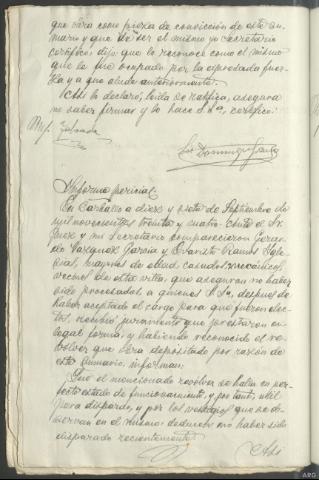 que obra como pieza de convicción de este su-
mario y que de ser el mismo yo Secretario
certifico: dijo que lo reconoce como el mismo
que le fue ocupado por la expresada fuer-
za y a que alude anteriormente.
Así lo declaró, leída se ratifica, asegura
no saber firmar y lo hace S.Sª, certifico.
Informe pericial:
En Carballo a diez y siete de Septiembre de
mil novecientos treinta y cuatro: ante el Sr.
Juez y mi Secretario comparecieron Gerar-
do Vazquez García y Evaristo Ramos Igle-
sias, mayores de edad casados, mecánicos
vecinos de esta villa, que aseguran no haber
sido procesados a quienes S.Sª, después de
haber aceptado el cargo para que fueron elec-
tos, recibió juramento que prestaron en
legal forma, y habiendo reconocido el re-
volver que obra depositado por razón de
este sumario, informan:
Que el mencionado revólver se halla en per-
fecto estado de funcionamiento, y por tanto, útil
para disparar, y por los vestigios que se ob-
servan en el mismo deducen no haber sido
disparado recientemente.
Así